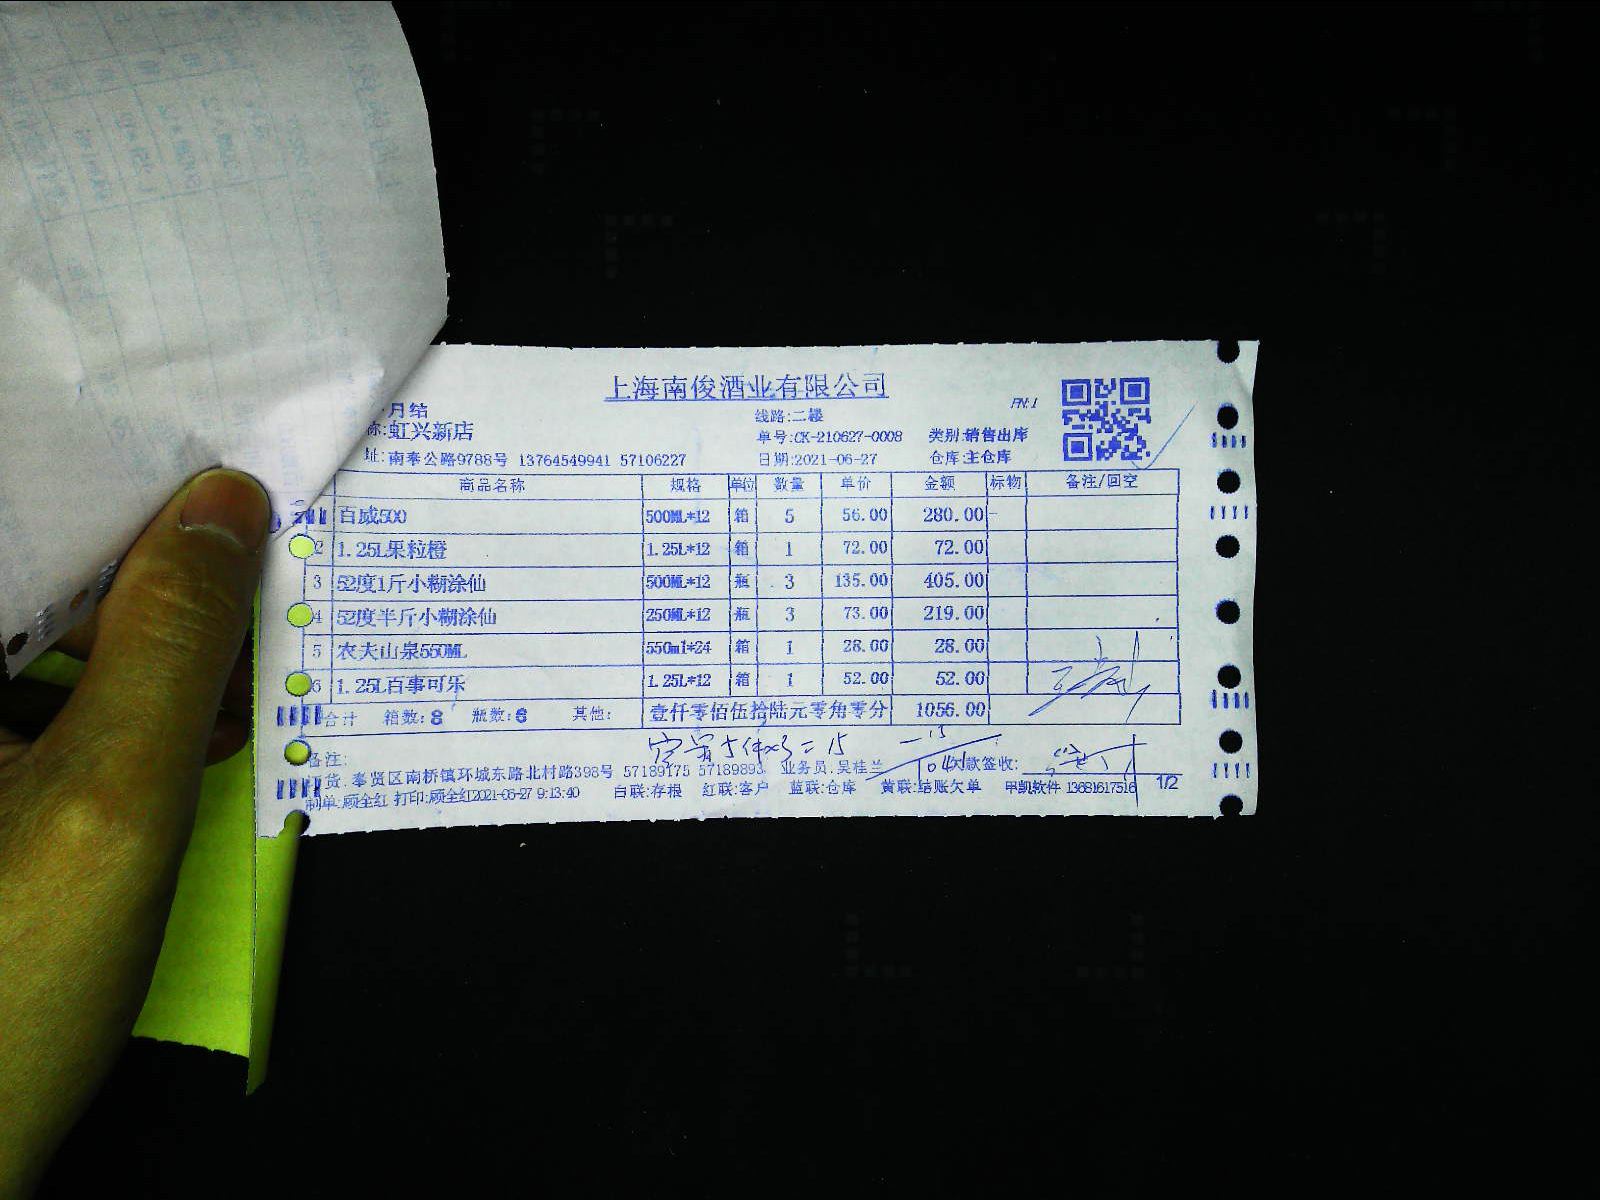 上海南俊酒业有限公司
PN:1
月结
线路:二楼
称:虹兴新店
单号:CK-210627-0008 类别:销售出库
址:南奉公路9788号 13764549941 57106227 日期:2021-06-27 仓库:主仓库
商品名称 规格 单位 数量 单价 金额 标物 备注/回空
1 百威500 500ML*12 箱 5 56.00 280.00 -
2 1.25L果粒橙 1.25L*12 箱 1 72.00 72.00
3 52度1斤小糊涂仙 500ML*12 瓶 3 135.00 405.00
4 52度半斤小糊涂仙 250ML*12 瓶 3 73.00 219.00
5 农夫山泉550ML 550ml*24 箱 1 28.00 28.00
6 1.25L百事可乐 1.25L*12 箱 1 52.00 52.00
合计 箱数:8 瓶数:6 其他: 壹仟零佰伍拾陆元零角零分 1056.00
5件x3=15 -15
备注: 1041
订货:奉贤区南桥镇环城东路北村路398号 57189175 57189893 业务员:吴桂兰 欠款签收:
制单:顾全红 打印:顾全红2021-06-27 9:13:40 白联:存根 红联:客户 蓝联:仓库 黄联:结账欠单 甲凯软件 13681617516 1/2